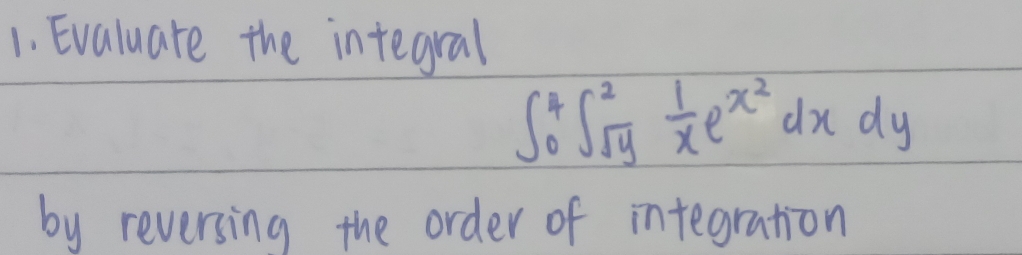 1. Evaluate the integral
∫₀⁴ ∫_√y² (1/x) e^x² dx dy
by reversing the order of integration